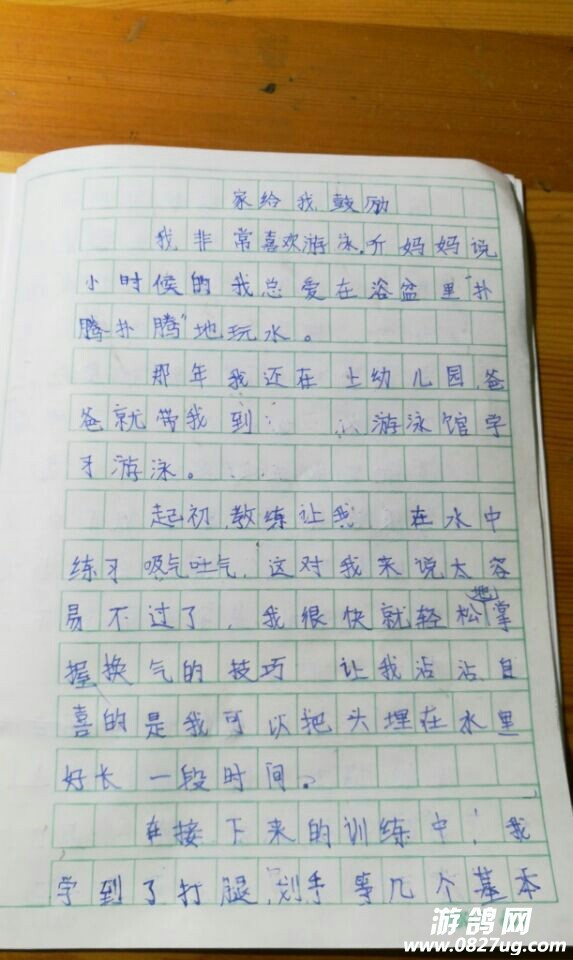 家给我鼓励
我非常喜欢游泳.听妈妈说
小时候的我总爱在浴盆里“扑
腾扑腾”地玩水。
那年我还在上幼儿园,爸
爸就带我到游泳馆学
习游泳。
起初,教练让我在水中
练习吸气吐气,这对我来说太容
易不过了,我很快就轻松地掌
握换气的技巧 让我沾沾自
喜的是我可以把头埋在水里
好长一段时间。
在接下来的训练中,我
学到了打腿,划手等几个基本
游鸽网
www.0827ug.com